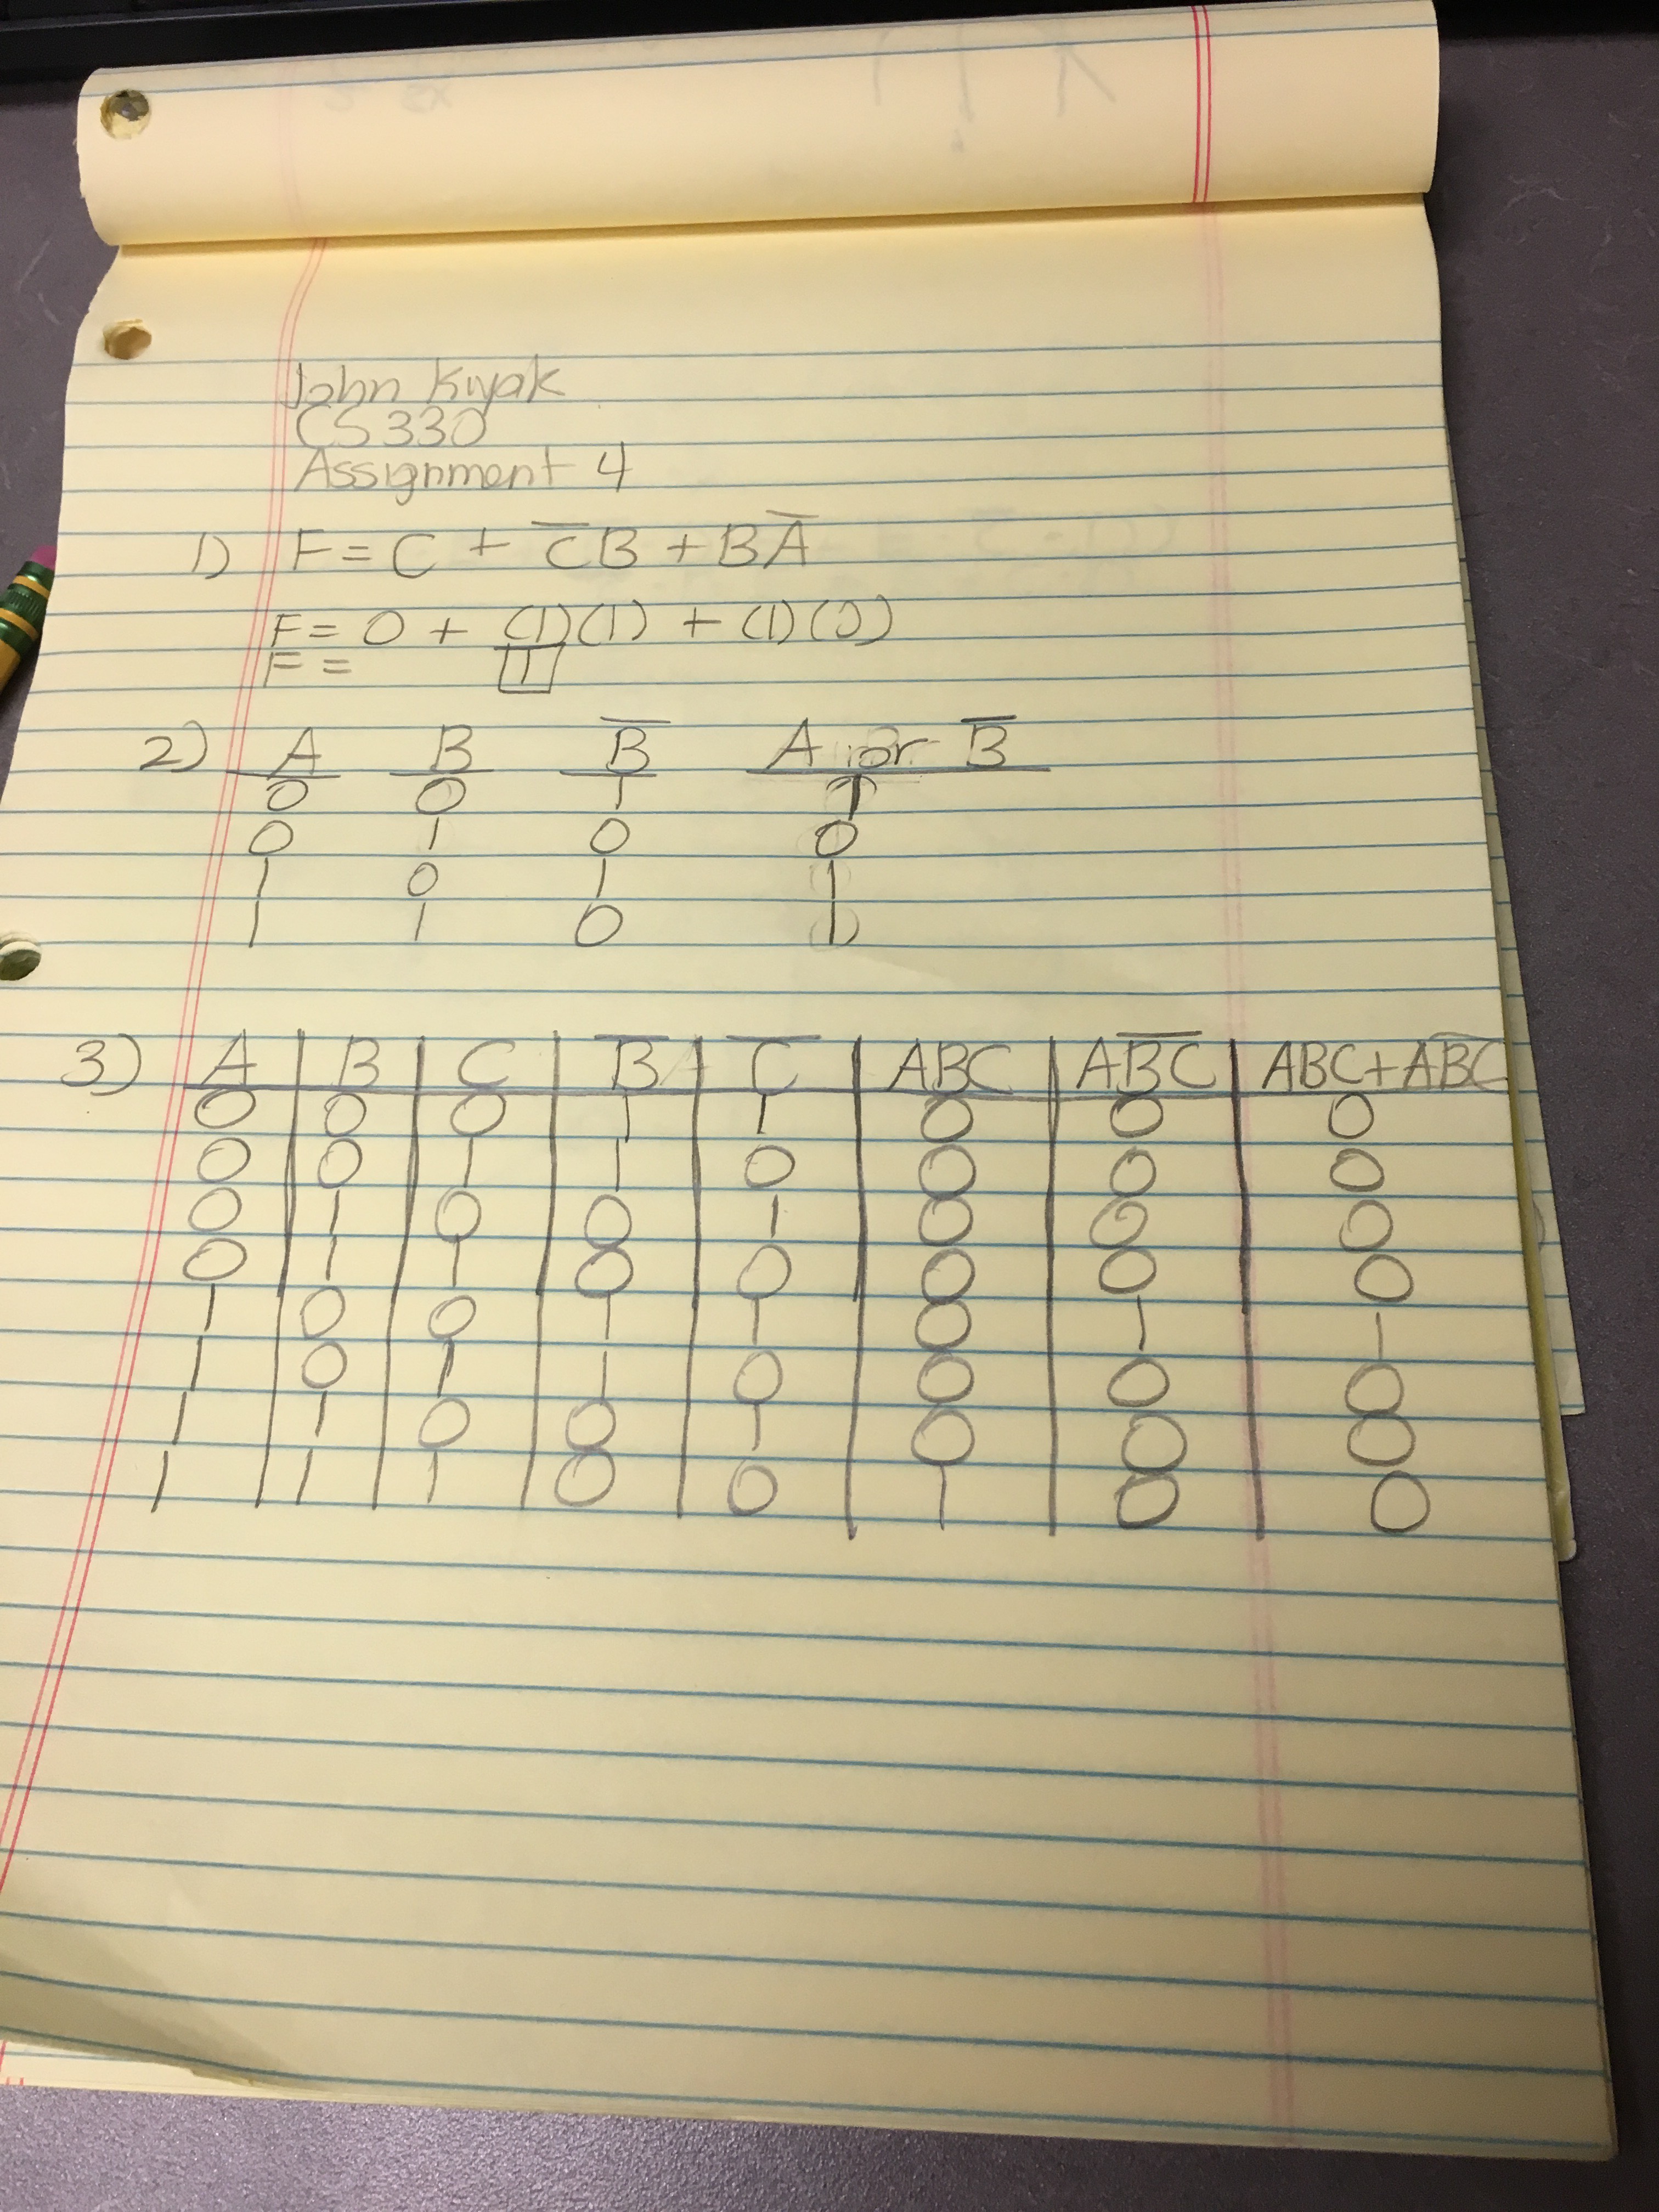 John Kiyak
CS330
Assignment 4
1) F = C + C̅B + BA̅
F = 0 + (1)(1) + (1)(0)
F = 1
2) A B B̅ A or B̅
0 0 1 1
0 1 0 0
1 0 1 1
1 1 0 1
3) A B C B̅ C̅ ABC AB̅C̅ ABC+AB̅C̅
0 0 0 1 1 0 0 0
0 0 1 1 0 0 0 0
0 1 0 0 1 0 0 0
0 1 1 0 0 0 0 0
1 0 0 1 1 0 1 1
1 0 1 1 0 0 0 0
1 1 0 0 1 0 0 0
1 1 1 0 0 1 0 0